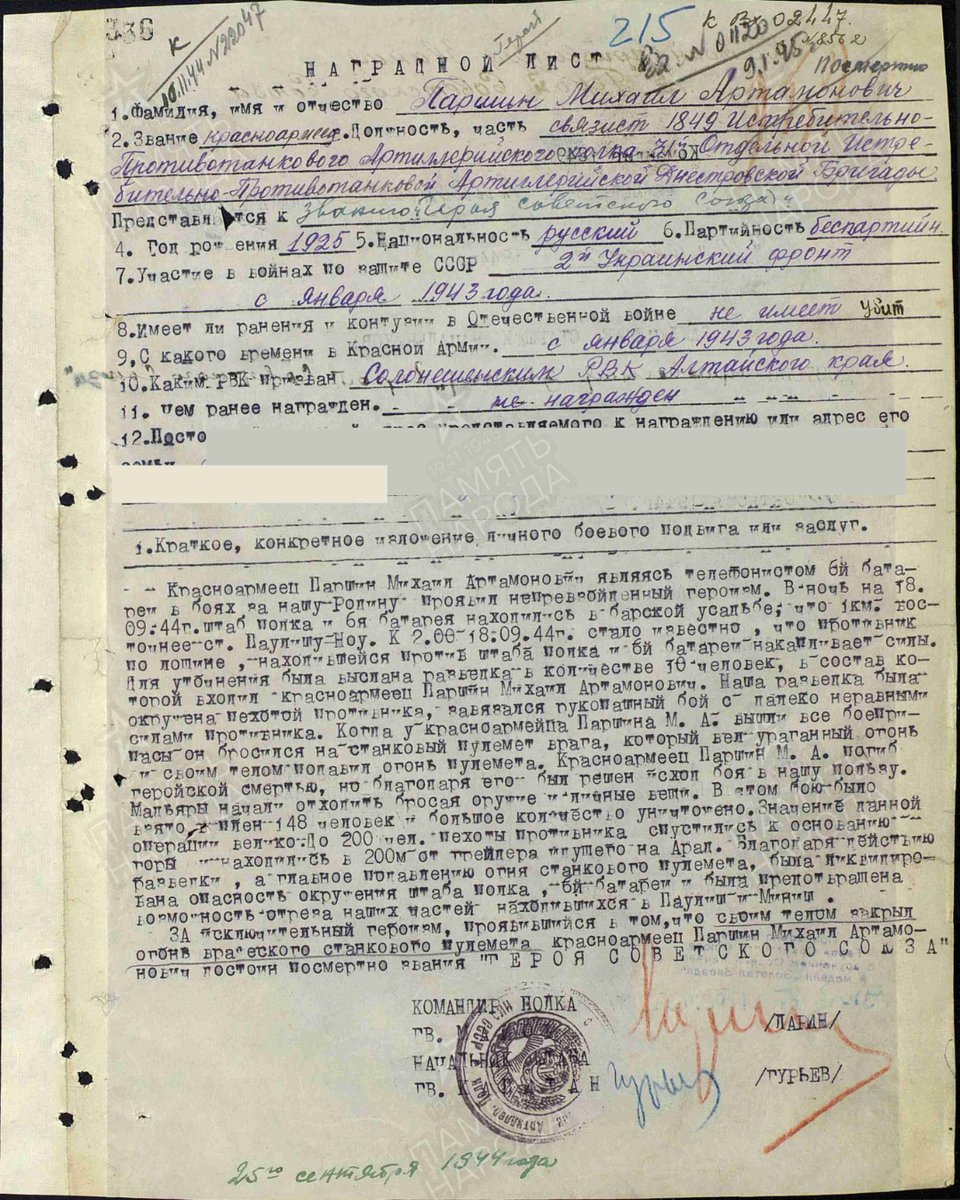 336
К
10.11.44 № 22047
Герой
215
К Вх. 02447.
Вх № 01120
9.1.45
Посмертно
НАГРАДНОЙ ЛИСТ
1.Фамилия, имя и отчество Паршин Михаил Артамонович
2.Звание красноармеец.Должность, часть связист 1849 Истребительно-
Противотанкового Артиллерийского полка 31 Отдельной Истре-
бительно-Противотанковой Артиллерийской Днестровской Бригады.
Представляется к званию "Героя Советского Союза"
4. Год рождения 1925 5.Национальность русский 6.Партийность беспартийн.
7.Участие в войнах по защите СССР 2й Украинский фронт
с января 1943 года.
8.Имеет ли ранения и контузии в Отечественной войне не имеет Убит
9,С какого времени в Красной Армии. с января 1943 года.
10.Каким РВК призван Солонешенским РВК Алтайского края.
11. чем ранее награжден. не награжден
12.Посто представляемого к награждению или адрес его
1.Краткое, конкретное изложение личного боевого подвига или заслуг.
Красноармеец Паршин Михаил Артамонович являясь телефонистом 6й бата-
реи в боях за нашу Родину проявил непревзойденный героизм. В ночь на 18.
09.44г.штаб полка и 6я батарея находились в барской усадьбе, что 1км. вос-
точнее ст. Паулишу-Ноу. К 2.00 18.09.44г. стало известно , что противник
по лощине , находившейся против штаба полка и 6й батареи накапливает силы.
Для уточнения была выслана разведка в количестве 10 человек, в состав ко-
торой входил красноармеец Паршин Михаил Артамонович. Наша разведка была
окружена пехотой противника, завязался рукопашный бой с далеко неравными
силами противника. Когда у красноармейца Паршина М. А. вышли все боепри-
пасы он бросился на станковый пулемет врага, который вел ураганный огонь
и своим телом подавил огонь пулемета. Красноармеец Паршин М. А. погиб
геройской смертью, но благодаря его был решен исход боя в нашу пользу.
Мадьяры начали отходить бросая оружие и личные вещи. В этом бою было
взято в плен 148 человек и большое количество уничтожено.Значение данной
операции велико.До 200 чел. пехоты противника спустились к основанию
горы и находились в 200м от грейдера идущего на Арад. Благодаря действию
разведки , а главное подавлению огня станкового пулемета, была ликвидиро-
вана опасность окружения штаба полка , 6й батареи и была предотвращена
возможность отреза наших частей находившихся в Паулиш и Миниш .
ЗА исключительный героизм, проявившийся в том,что своим телом закрыл
огонь вражеского станкового пулемета красноармеец Паршин Михаил Артамо-
нович достоин посмертно звания "ГЕРОЯ СОВЕТСКОГО СОЮЗА"
КОМАНДИР ПОЛКА
ГВ. М /ЛАРИН/
НАЧАЛЬНИК ШТАБА
ГВ. Гурьев /ГУРЬЕВ/
25го сентября 1944 года
ПАМЯТЬ НАРОДА